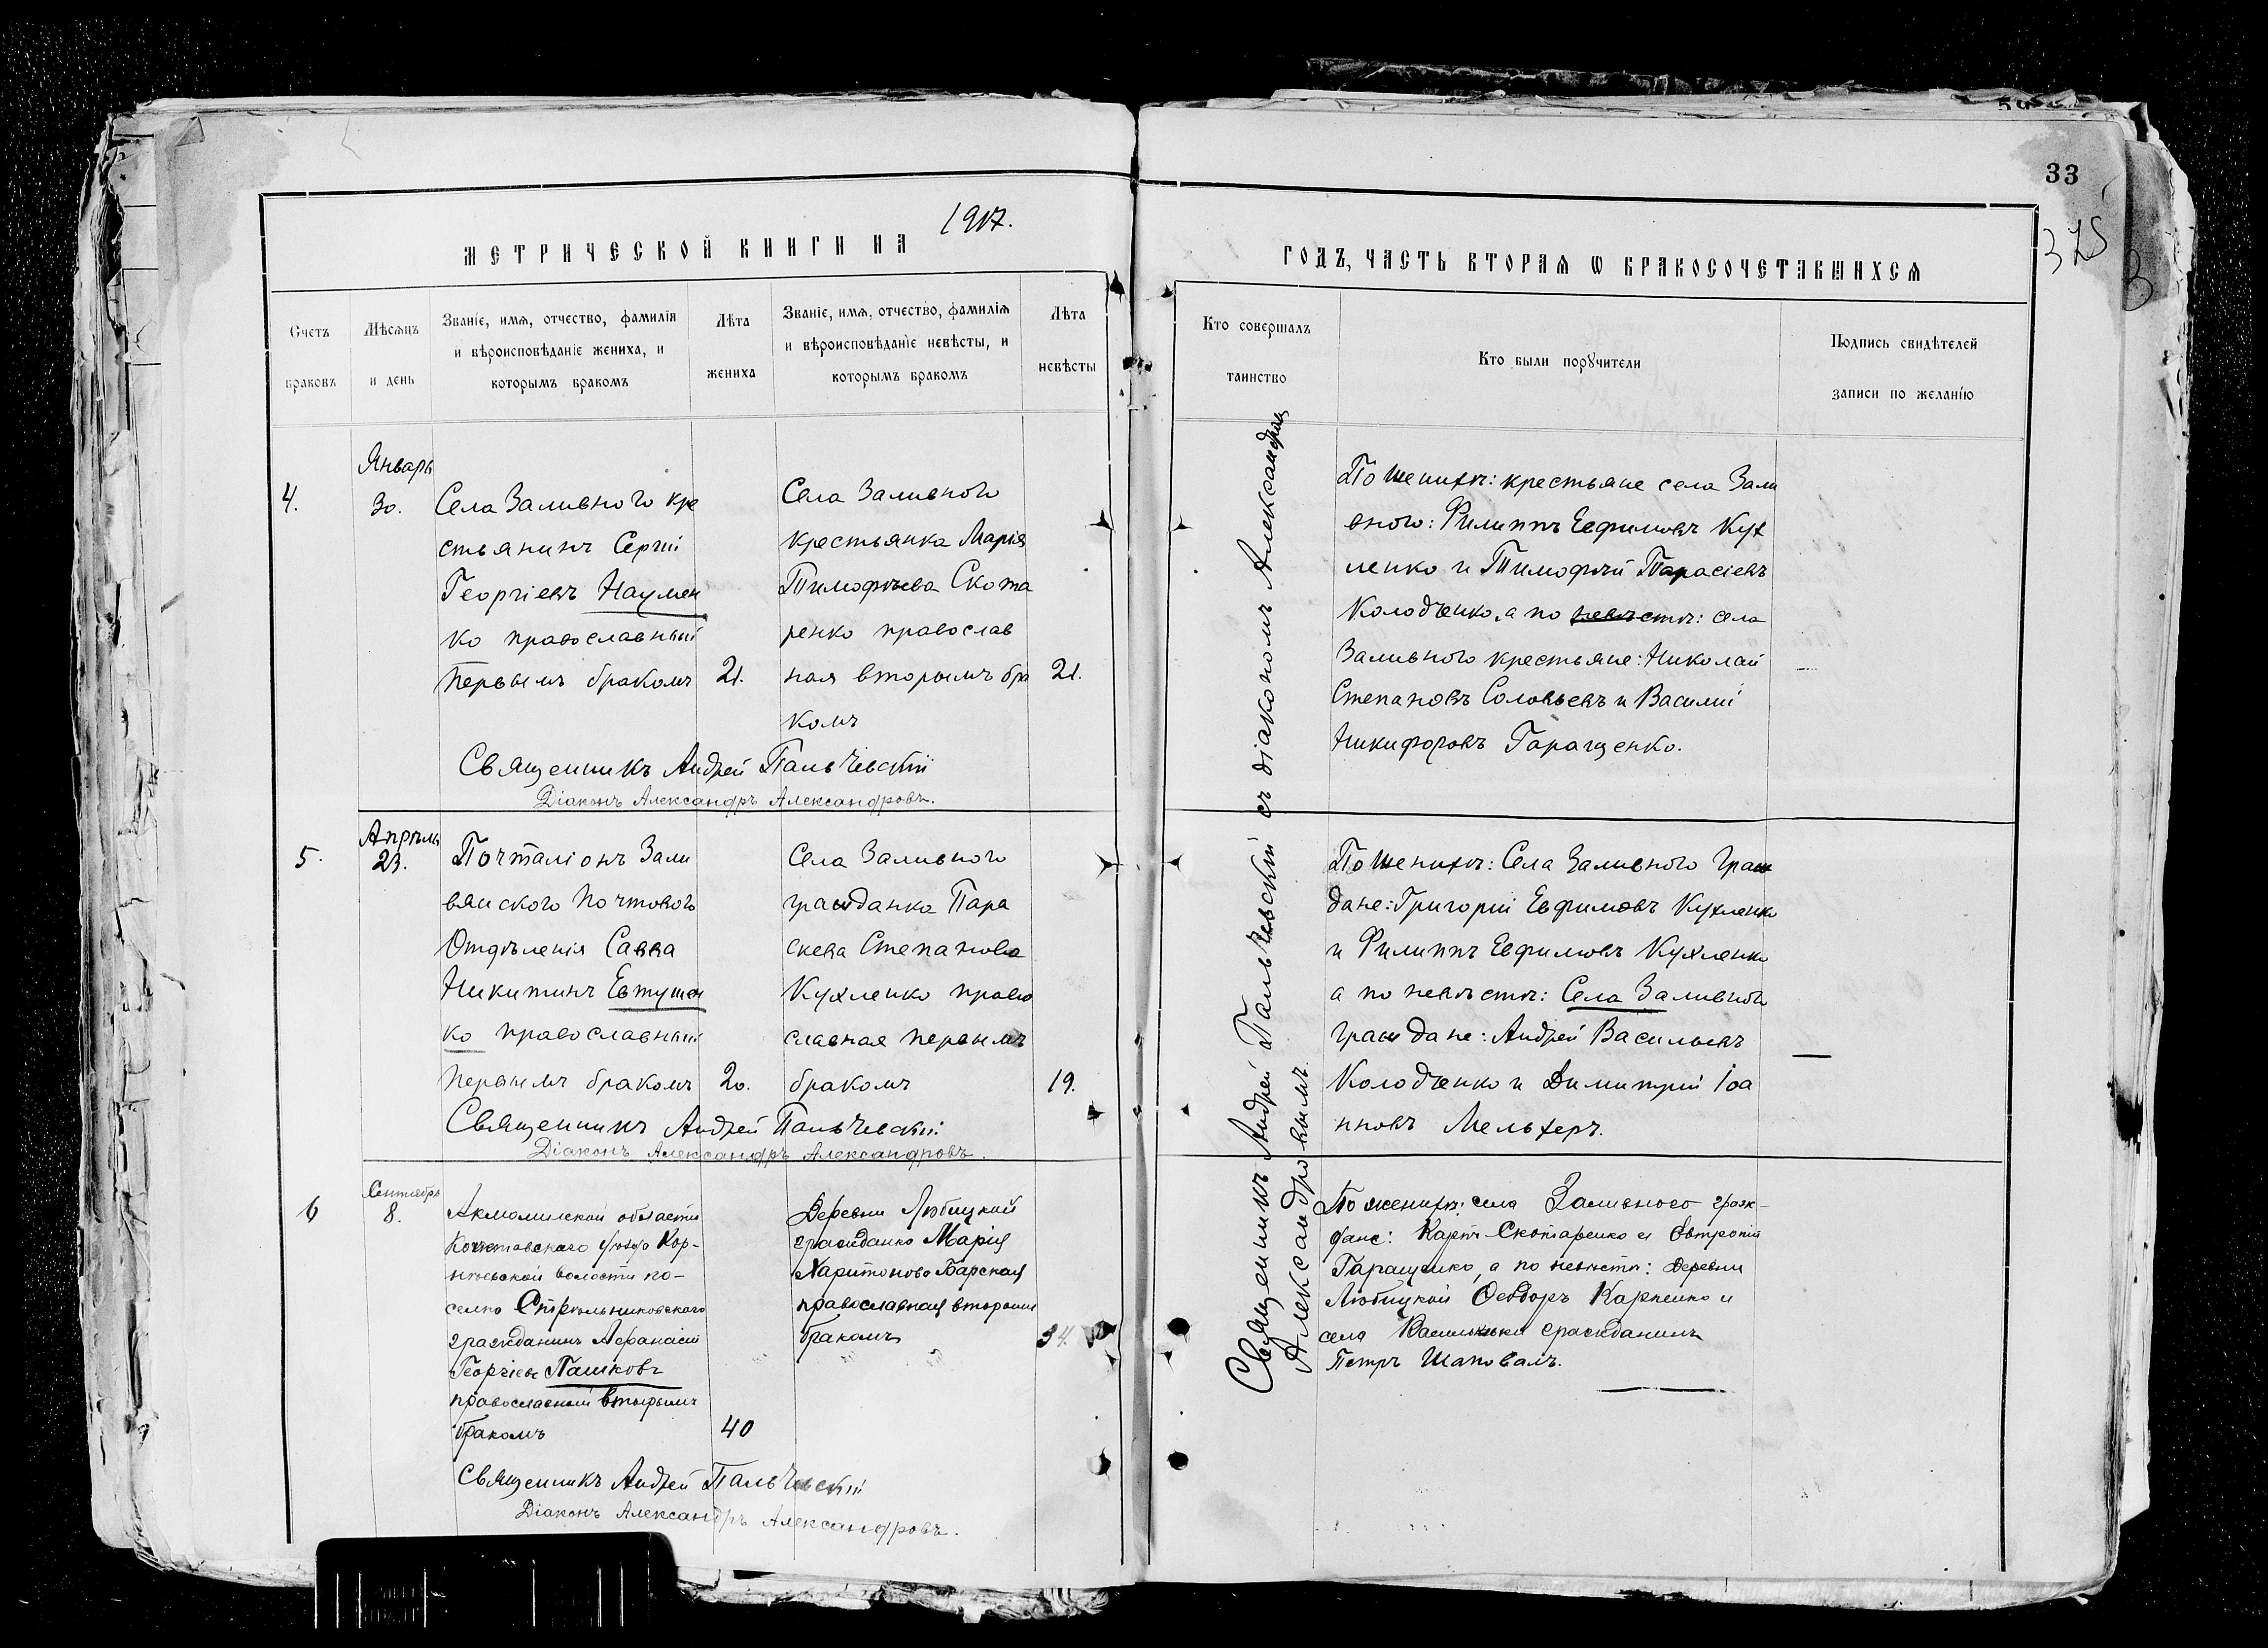 33
325
3
1917.
МЕТРИЧЕСКОЙ КНИГИ НА
ГОДЪ, ЧАСТЬ ВТОРАЯ Ѡ БРАКОСОЧЕТАВШИХСЯ
Счетъ
браковъ
Мѣсяцъ
и день
Званіе, имя, отчество, фамилія
и вѣроисповѣданіе жениха, и
которымъ бракомъ
Лѣта
жениха
Званіе, имя, отчество, фамилія
и вѣроисповѣданіе невѣсты, и
которымъ бракомъ
Лѣта
невѣсты
Кто совершалъ
таинство
Кто были поручители
Подпись свидѣтелей
записи по желанію
4.
Январь
30.
Села Заливного кре
стьянинъ Сергій
Георгіевъ Наумен
ко православный
первымъ бракомъ
21.
Села Заливного
крестьянка Марія
Тимофѣева Скота
ренко православ
ная вторымъ бра
комъ
21.
Священникъ Андрей Пальчевскій
Діаконъ Александръ Александровъ.
По женихѣ: крестьяне села Зали
вного: Филиппъ Евфимовъ Кух
ленко и Тимофѣй Тарасіевъ
Колодѣенко, а по невѣстѣ: села
Заливного крестьяне: Николай
Степановъ Соловьевъ и Василій
Никифоровъ Гаращенко.
5.
Апрѣль
23.
Почталіонъ Зали
вянского почтового
Отдѣленія Савва
Никитинъ Евтушен
ко православный
первымъ бракомъ
20.
Села Заливного
гражданка Пара
скева Степанова
Кухленко право
славная первымъ
бракомъ
19.
Священникъ Андрей Пальчевскій
Діаконъ Александръ Александровъ.
По женихѣ: Села Заливного граж
дане: Григорій Евфимовъ Кухленко
и Филиппъ Евфимовъ Кухленко
а по невѣстѣ: Села Заливного
граждане: Андрей Васильевъ
Колодѣенко и Димитрій Іоа
нновъ Мельхеръ.
6
Сентябрь
8.
Акмолинской области
Кокчетавскаго уѣзда Кор-
нѣевской волости по-
селка Стрѣльниковскаго
гражданинъ Афанасій
Георгіевъ Пашковъ
православный вторымъ
бракомъ
40
Деревни Любицкой
гражданка Марія
Харитонова Барская
православная вторымъ
бракомъ
34.
Священникъ Андрей Пальчевскій
Діаконъ Александръ Александровъ.
По женихѣ: села Заливного граж-
дане: Карпъ Скотаренко и Евтропій
Гаращенко, а по невѣстѣ: деревни
Любицкой Ѳеодоръ Карпенко и
села гражданинъ
Петръ Шаповалъ.
Священникъ Андрей Пальчевскій съ діакономъ Александромъ
Александровымъ.